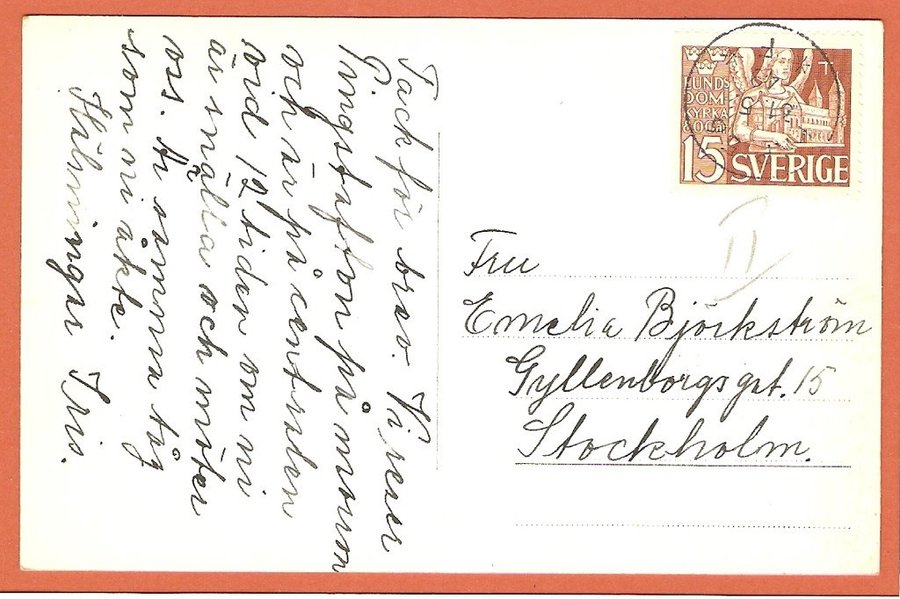 Tack för brev. Vi reser
Pingstafton på morron
och är på centralen
vid 12 tiden om ni
är snälla och möter
oss. Är samma tåg
som ni åkte.
Hälsningar Iris.
LUNDS
DOM-
KYRKA
800 ÅR
15 SVERIGE
II
Fru
Emelia Björkström
Gyllenborgsgat. 15
Stockholm.